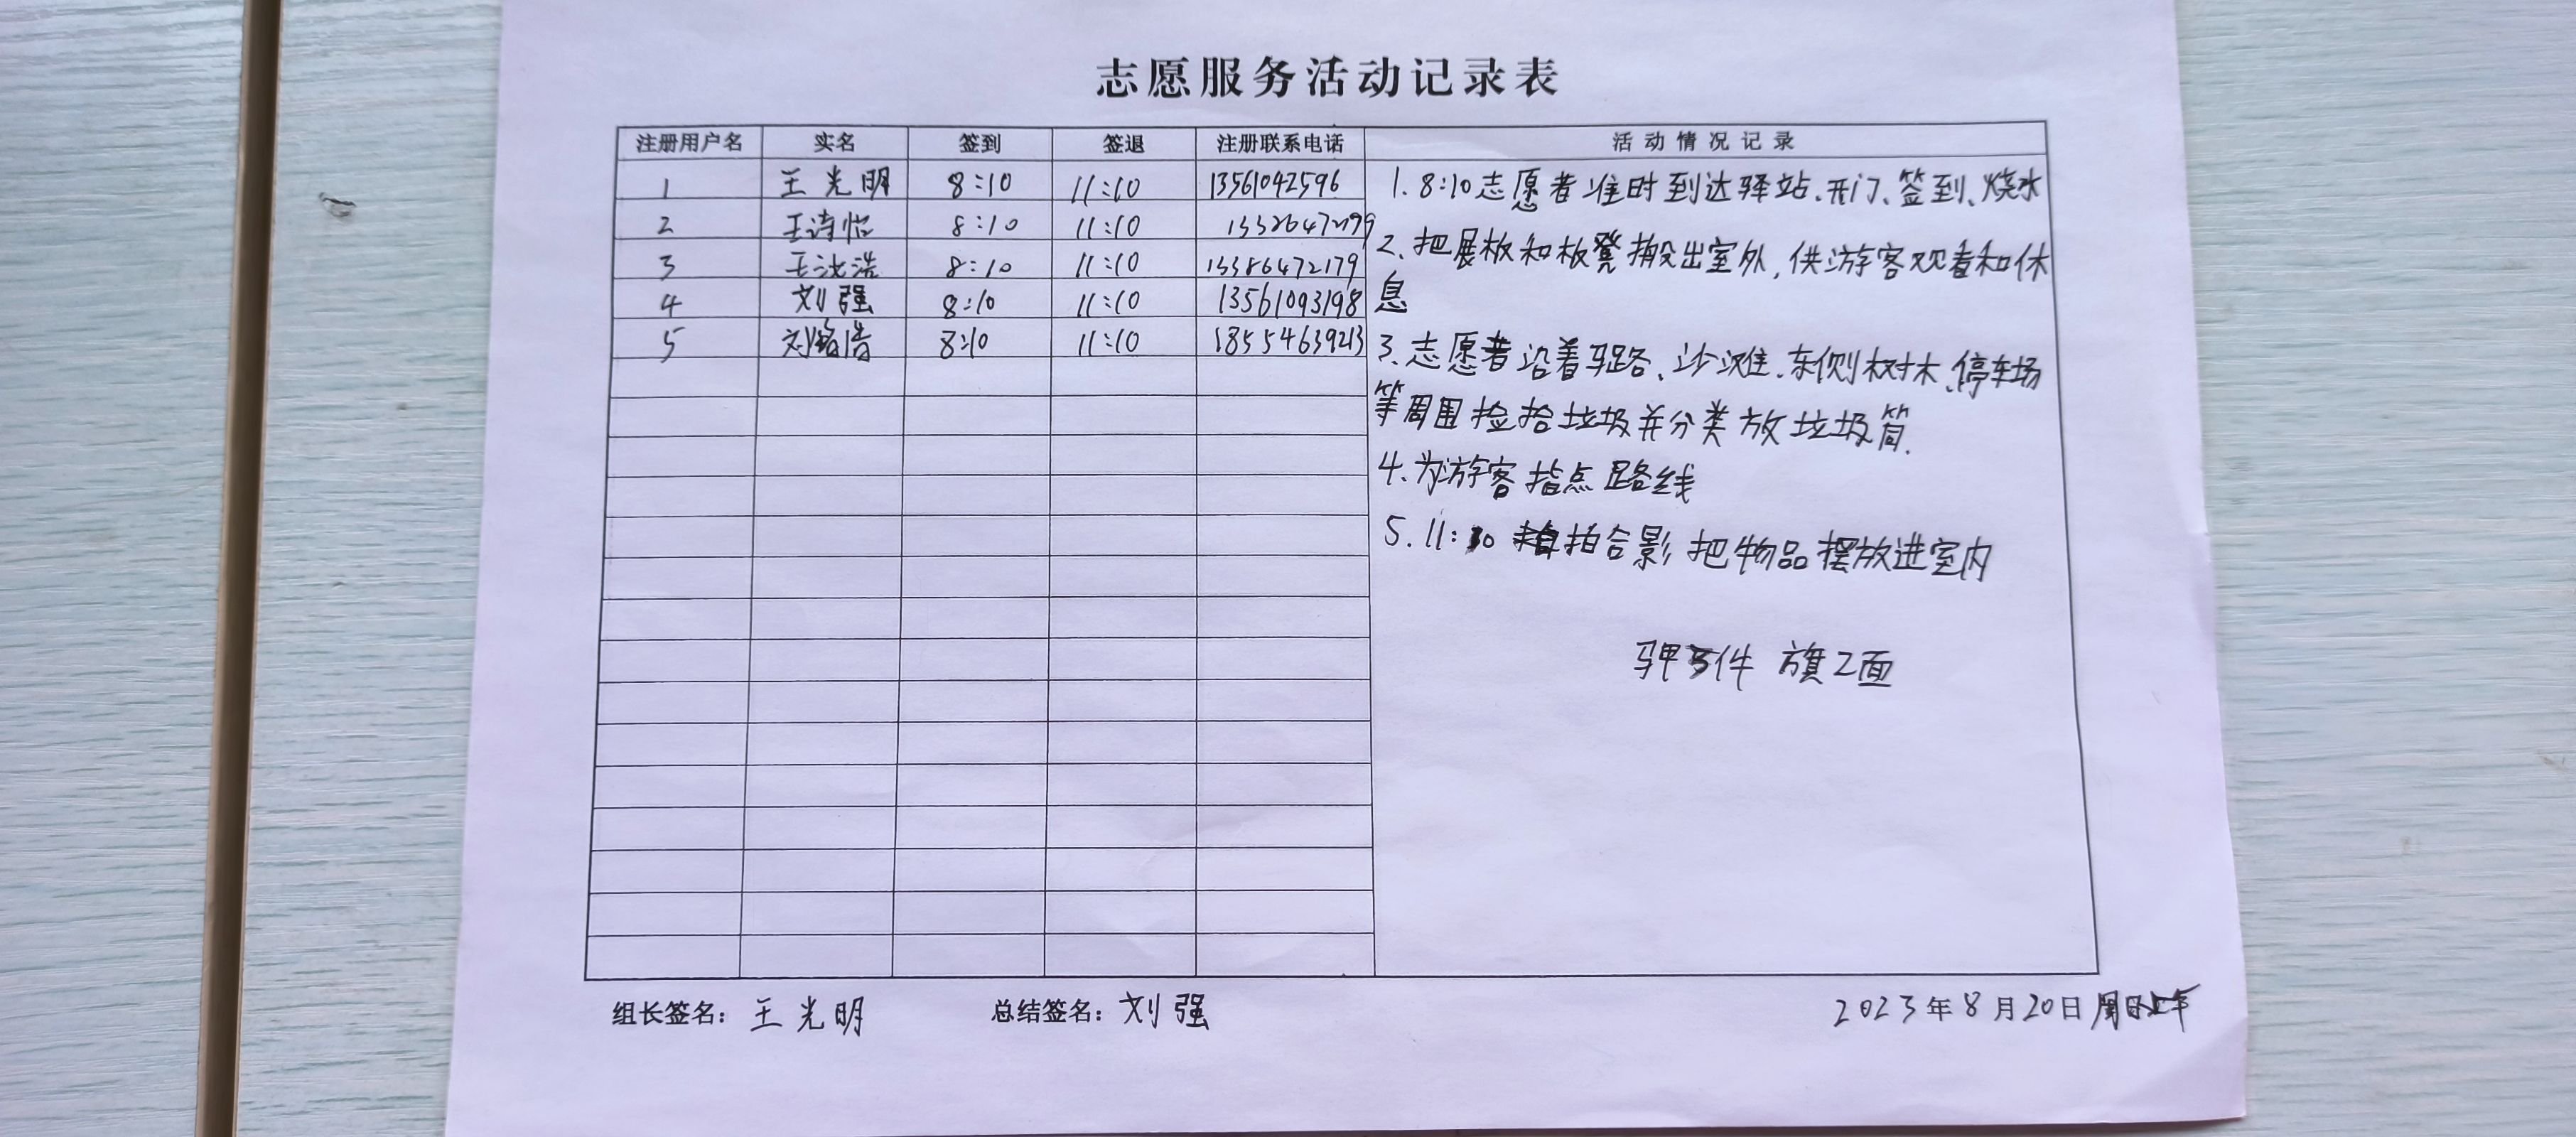 志愿服务活动记录表
注册用户名 实名 签到 签退 注册联系电话 活动情况记录
1 王光明 8:10 11:10 13561042596
2 王诗怡 8:10 11:10
3 8:10 11:10 13386472179
4 刘强 8:10 11:10 13561093198
5 8:10 11:10 18554639213
1. 8:10志愿者准时到达驿站、开门、签到、烧水
2. 把展板和板凳搬出室外,供游客观看和休
息
3. 志愿者沿着马路、沙滩、东侧树木、停车场
等周围捡拾垃圾并分类放垃圾筒.
4. 为游客指点路线
5. 11:30 拍合影 把物品摆放进室内
5件 旗2面
组长签名: 王光明 总结签名: 刘强 2023年8月20日 周日上午